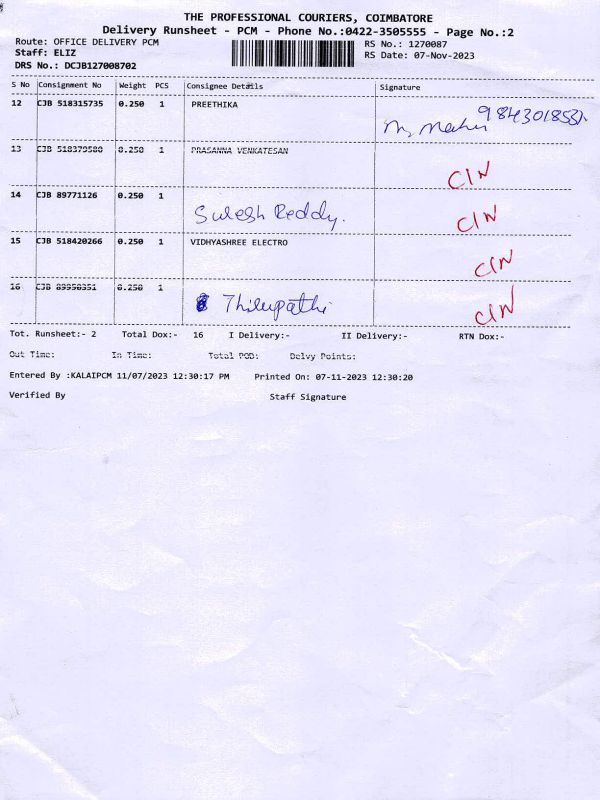 THE PROFESSIONAL COURIERS, COIMBATORE
Delivery Runsheet - PCM - Phone No.:0422-3505555 - Page No.:2
Route: OFFICE DELIVERY PCM RS No.: 1270087
Staff: ELIZ RS Date: 07-Nov-2023
DRS No.: DCJB127008702
S No Consignment No Weight PCS Consignee Details Signature
12 CJB 518315735 0.250 1 PREETHIKA
13 CJB 518379580 0.250 1 PRASANNA VENKATESAN
CIN
14 CJB 89771126 0.250 1
Suresh Reddy. CIN
15 CJB 518420266 0.250 1 VIDHYASHREE ELECTRO
CIN
16 CJB 89958351 0.250 1
Thilupathi CIN
Tot. Runsheet:- 2 Total Dox:- 16 I Delivery:- II Delivery:- RTN Dox:-
Out Time: In Time: Total POD: Delvy Points:
Entered By :KALAIPCM 11/07/2023 12:30:17 PM Printed On: 07-11-2023 12:30:20
Verified By Staff Signature